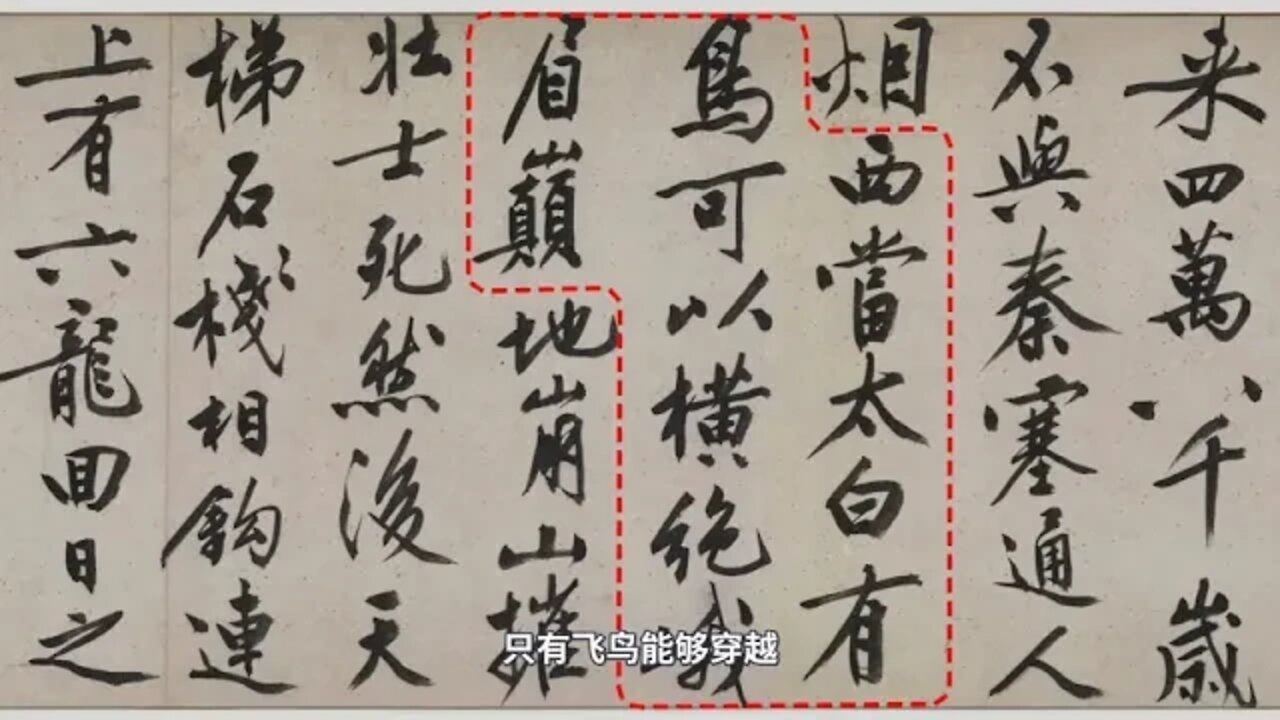 来四萬八千歲
不與秦塞通人
烟西當太白有
鳥可以橫絶峨
眉巔地崩山摧
壮士死然後天
梯石棧相鈎連
上有六龍囬日之
只有飞鸟能够穿越